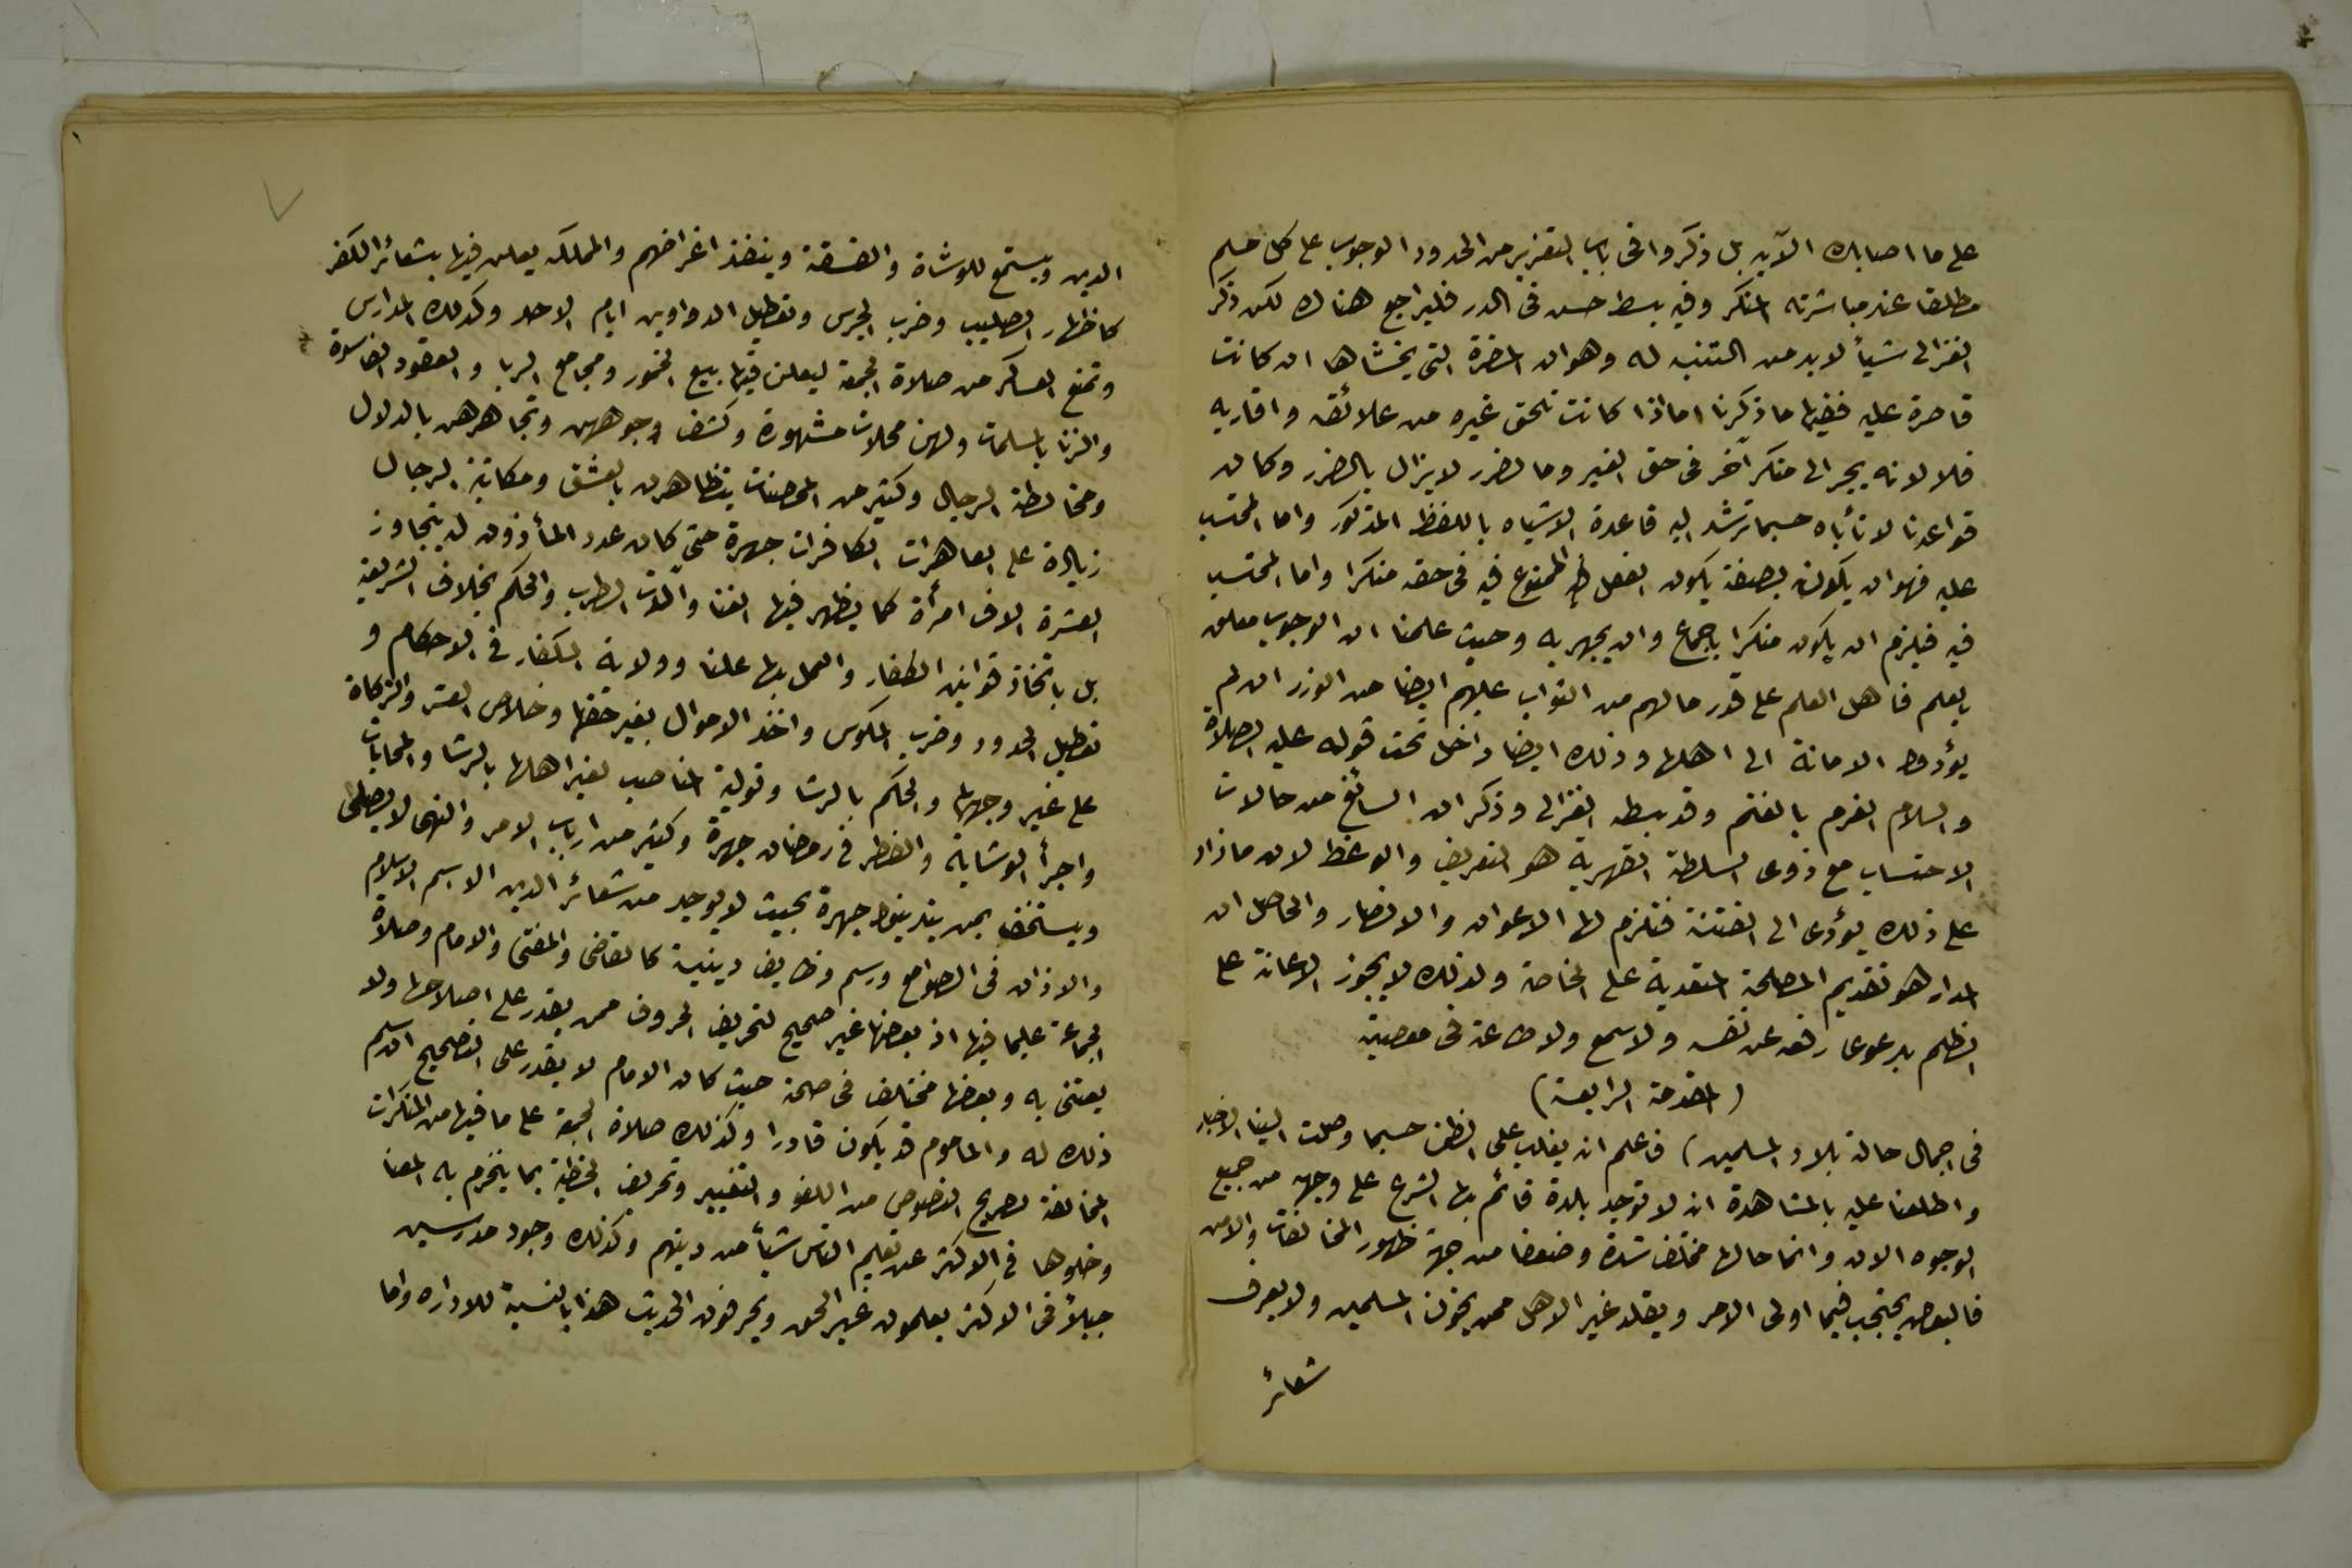 على ما اصابك الآية بل ذكروا فى باب التعزير من الحدود الوجوب على كل مسلم
مطلقا عند مباشرته المنكر وفيه بسط حسن فى الدر فليراجع هناك لكن ذكر
الغزالى شيأ لابد من التنبه له وهو ان المضرة التى يخشاها ان كانت
قاصرة عليه ففيها ما ذكرنا اما اذا كانت تلحق غيره من علائقه واقاربه
فلا لانه يجر الى منكر آخر فى حق الغير وما لضرر لا يزال بالضرر وكان
قواعدنا لا تأباه حسبما ترشد اليه قاعدة الاشباه باللفظ المذكور واما المحتسب
عليه فهو ان يكون بصفة يكون الفعل الممنوع فيه فى حقه منكرا واما المحتسب
فيه فيلزم ان يكون منكرا باجماع وان يجهر به وحيث علمنا ان الوجوب معلق
بالعلم فاهل العلم على قدر مالهم من الثواب عليهم ايضا من الوزر ان لم
يؤدوا الامانة الى اهلها وذلك ايضا داخل تحت قوله عليه الصلاة
والسلام الغرم بالغنم وقد بسطه الغزالى وذكر ان السائغ من حالات
الاحتساب مع ذوى السلطة القهرية هو التعريف والوعظ لان ما زاد
على ذلك يؤدى الى الفتنة فتلزم لها الاعوان والانصار والحاصل ان
المدار هو تقديم المصلحة المتعدية على الخاصة ولذلك لا يجوز الاعانة على
الظلم بدعوى رفعه عن نفسه ولا سمع ولا طاعة فى معصية
(المقدمة الرابعة)
فى اجمال حالة بلاد المسلمين) فاعلم انه يغلب على الظن حسبما وصلت الينا الاخبار
واطلعنا عليه بالمشاهدة انه لا توجد بلدة قائم بها الشرع على وجهه من جميع
الوجوه الان وانما حالها مختلف شدة وضعفا من جهة ظهور المخالفات والامن
فالبعض يحتجب فيها اولى الامر ويقلد غير الاهل ممن يخون المسلمين ولا يعرف
شعائر
الدين ويستمع للوشاة والفسقة وينفذ اغراضهم والمملكة يعلن فيها بشعائر الكفر
كاظهار الصليب وضرب الجرس وتعطيل الدواوين ايام الاحد وكذلك المدارس
وتمنع العساكر من صلاة الجمعة ليعلن فيها ببيع الخمور ومجامع الربا والعقود الفاسدة
والزنا بالمسلمات ولهن محلات مشهورة وكشف وجوههن وتجاهرهن بالدلال
ومخالطة الرجال وكثير من المحصنات يتظاهرن بالعشق ومكاتبة الرجال
زيادة على العاهرات الكافرات جهرة حتى كان عدد المأذون لهن يتجاوز
العشرة الاف امرأة كما يظهر فيها الغنا وآلات الطرب والحكم بخلاف الشريعة
بل باتخاذ قوانين الكفار والعمل بها علنا وولاية الكفار فى الاحكام و
تعطيل الحدود وضرب المكوس واخذ الاموال بغير حقها وخلاص العشر والزكاة
على غير وجهها والحكم بالرشا وتولية المناصب لغير اهلها بالرشا والمحابات
واجرأ الوشاية والفطر فى رمضان جهرة وكثير من ارباب الامر والنهى لا يصلى
ويستخف بمن يتدين جهرة بحيث لا يوجد من شعائر الدين الا اسم الاسلام
والاذان فى الصوامع ورسم وظايف دينية كالقاضى والمفتى والامام وصلاة
الجماعة على ما فيها اذ بعضها غير صحيح لتحريف الحروف ممن يقدر على اصلاحها ولا
يعتنى به وبعضها مختلف فى صحته حيث كان الامام لا يقدر على التصحيح
ذلك له والماموم قد يكون قادرا وكذلك صلاة الجمعة على ما فيها من المنكرات
المخالفة لصريح النصوص من اللغو والتغيير وتحريف الخطبة بما ينخرم به المعنا
وخلوها فى الاكثر عن تعليم الناس شيأ من دينهم وكذلك وجود مدرسين
جهلأ فى الاكثر يعلمون غير الحق ويحرفون الحديث هذا بالنسبة للاداره واما